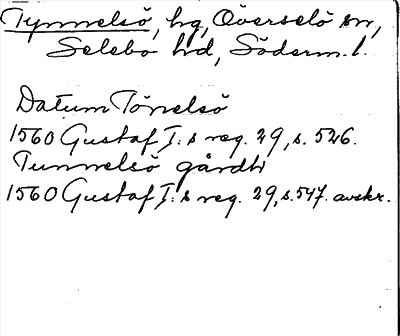 Tynnelsö, hg, Överselö sn,
Selebo hd, Söderm. l.
Datum Tönelsö
1560 Gustaf I:s reg. 29, s. 526.
Tunnelsö gårdh
1560 Gustaf I:s reg. 29, s. 547. avskr.